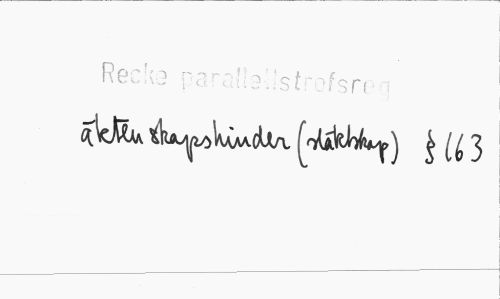 Recke parallellstrofsreg
äktenskapshinder (släktskap) § 163